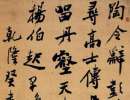 陶令辭彭
尋高士傳
留丹壑天
楊伯起早
乾隆癸